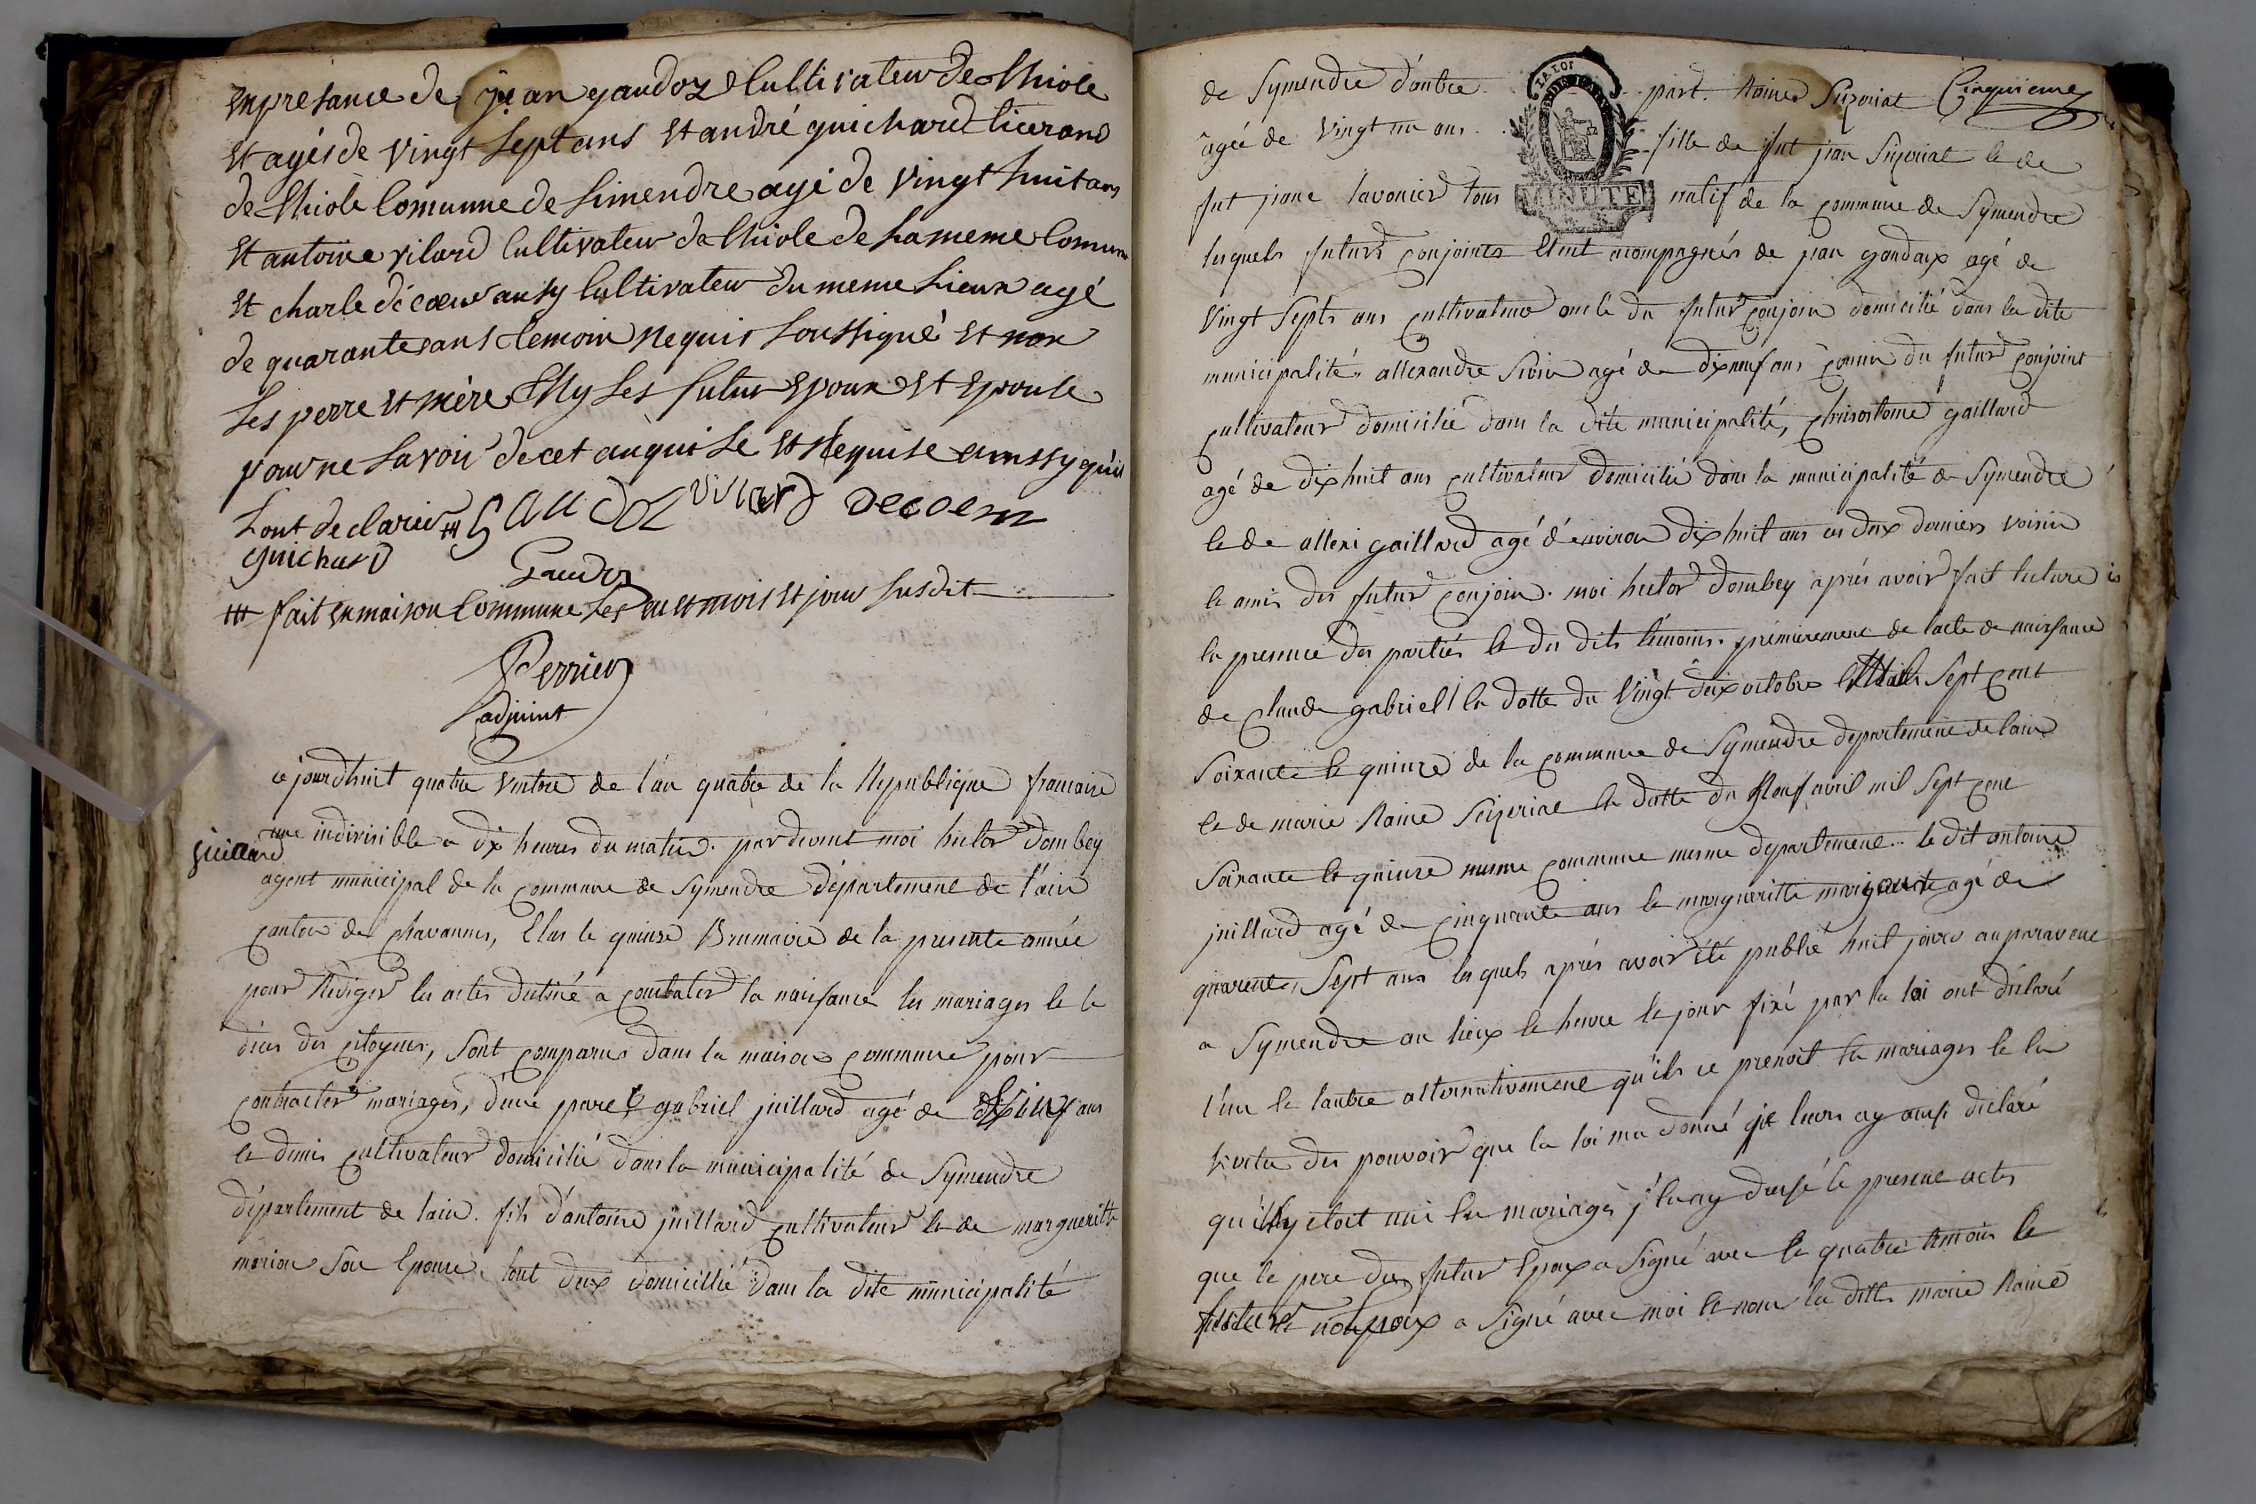 En presance de jean gaudoz Cultivateur de Chiole
Et agés de vingt Sept ans Et andré guichard ticerand
de Chiole Comunne de Simendre agé de vingt huit ans
Et antoine vilard Cultivateur de Chiole de La meme Comune
Et charle décoeur ausy Cultivateur du meme Lieux agé
de quarante ans temoin Requis Soussigné Et non
Les perre Et mère Ny Les futur Epoux Et Epouse
pour ne Savoir de cet anquise Et Requise ainssy qu'il
Sont declarer ### GAUdoz vilard decoeur
guichard
Gaudoz
### fait En maison Commune Les an Et mois Et jour Susdit
Perrier
adjoint
juillard
ce jourdhuit quatre Ventose de l'an quatre de la Republique francaise
une indivisible a dix heures du matin. par devant moi hector Dombey
agent municipal de la commune de Symendre département de l'ain
canton de Chavannes, Elus le quinze Brumaire de la presente année
pour Rediger les actes destiné a constater la naissance les mariages et le
déces des citoyens, Sont comparus dans la maison commune pour
contracter mariages, d'une part gabriel juillard agé de vingt ans
et demis cultivateur domicilié dans la municipalité de Symendre
département de lain. fils d'antoine juillard cultivateur et de margueritte
morion Son Epouse tout deux domicillié dans la dite municipalité
de Symendre d'autre part. Raine Sizeriat Cinquieme
âgée de vingt un ans fille de fut jean Sizeriat et de
fut jeane Savonier tous natif de la commune de Symendre
LA LOI
MINUTE
lesquels futurs conjoints Etant acompagnés de jean gandoux agé de
Vingt Septs ans cultivateur oncle du futur conjoin domicilié dans la dite
municipalité, allexandre Sivin agé de dixneuf ans cousin du futur conjoint
cultivateur domicilié dans la dite municipalité, chrisostome gaillard
agé de dixhuit ans cultivateur domicilié dans la municipalité de Symendre
et de allexi gaillard agé d'environ dixhuit ans ces deux derniers voisin
et amis des futur conjoin. moi hector Dombey après avoir fait lecture en
la presence des partiés et des dits témoins. premierement de l'acte de naissance
de Claude gabriel en datte du Vingt deux octobre Mil Sept cent
Soixante et quinze de la commune de Symendre departement de lain
et de marie Raine Seizeriat en datte du Neuf avril mil Sept cent
Soixante et quinze meme commune meme departement... le dit antoine
juillard agé de cinquante ans et margueritte agé de
quarente, Sept ans lesquels après avoir été publié huit jours auparavent
a Symendre au lieux et heure et jour fixé par la loi ont déclaré
l'un et lautre alternativement qu'ils ce prenoit en mariages et en
vertu des pouvoir que la loi ma donné je leurs ay ausi déclaré
qu'ily etoit uni en mariages j'en ay dressé le present actes
que le pere des futur Epoux a Signé avec les quatre temoin le
futur Epoux a Signé avec moi et non la ditte marie Raine